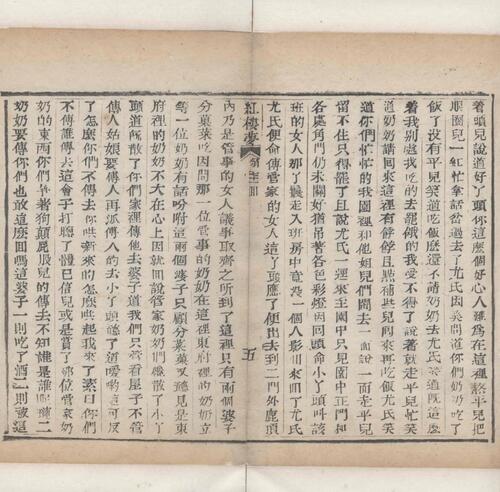 着頭兒說道好丫頭你這麼個好心人難爲在這裡熬平兒把
眼圈兒一紅忙拿話岔過去了尤氏因笑問道你們奶奶吃了
飯了沒有平兒笑道吃飯麼還不請奶奶去尤氏笑道既這麼
着我別處找吃的去罷餓的我受不得了說着就走平兒忙笑
道奶奶請回來這裡有餑餑且點補些兒回來再吃飯尤氏笑
道你們忙忙的我園裡和他姐兒們鬧去一面說一面走平兒
留不住只得罷了且說尤氏一逕來至園中只見園中正門和
各處角門仍未關好猶吊著各色彩燈因回頭命小丫頭叫該
班的女人那丫鬟走入班房中竟沒一個人影回來回了尤氏
尤氏便命傳管家的女人這丫頭應了便出去到二門外鹿頂
紅樓夢 第七十一回 五
內乃是管事的女人議事取齊之所到了這裡只有兩個婆子
分菓菜吃因問那一位管事的奶奶在這裡東府裡的奶奶立
等一位奶奶有話吩咐這兩個婆子只顧分菜菓又聽見是東
府裡的奶奶不大在心上因就回說管家奶奶們纔散了小丫
頭道既散了你們家裡傳他去婆子道我們只管看屋子不管
傳人姑娘要傳人再派傳人的去小丫頭聽了道噯喲這可反
了怎麼你們不傳去你哄新來的怎麼哄起我來了素日你們
不傳誰傳去這會子打聽了體已信兒或是賞了那位管家奶
奶的東西你們爭著狗顛屁股兒的傳去不知誰是誰呢璉二
奶奶要傳你們也敢這麼回嗎這婆子一則吃了酒二則被這